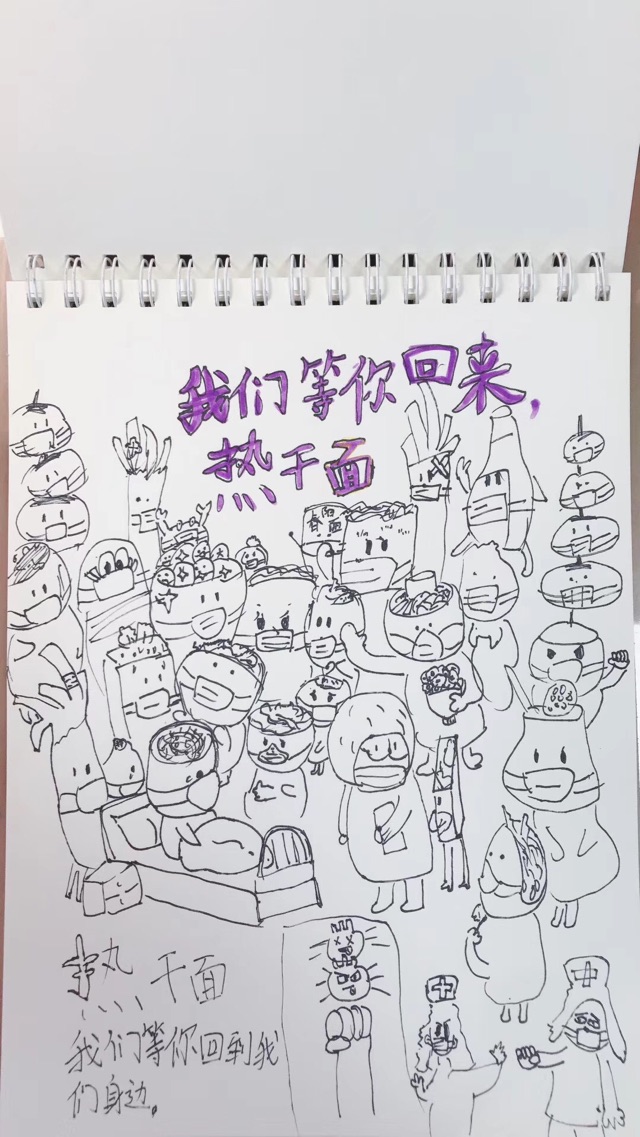 我们等你回来,
热干面
春阳面
热干面
我们等你回到我
们身边。